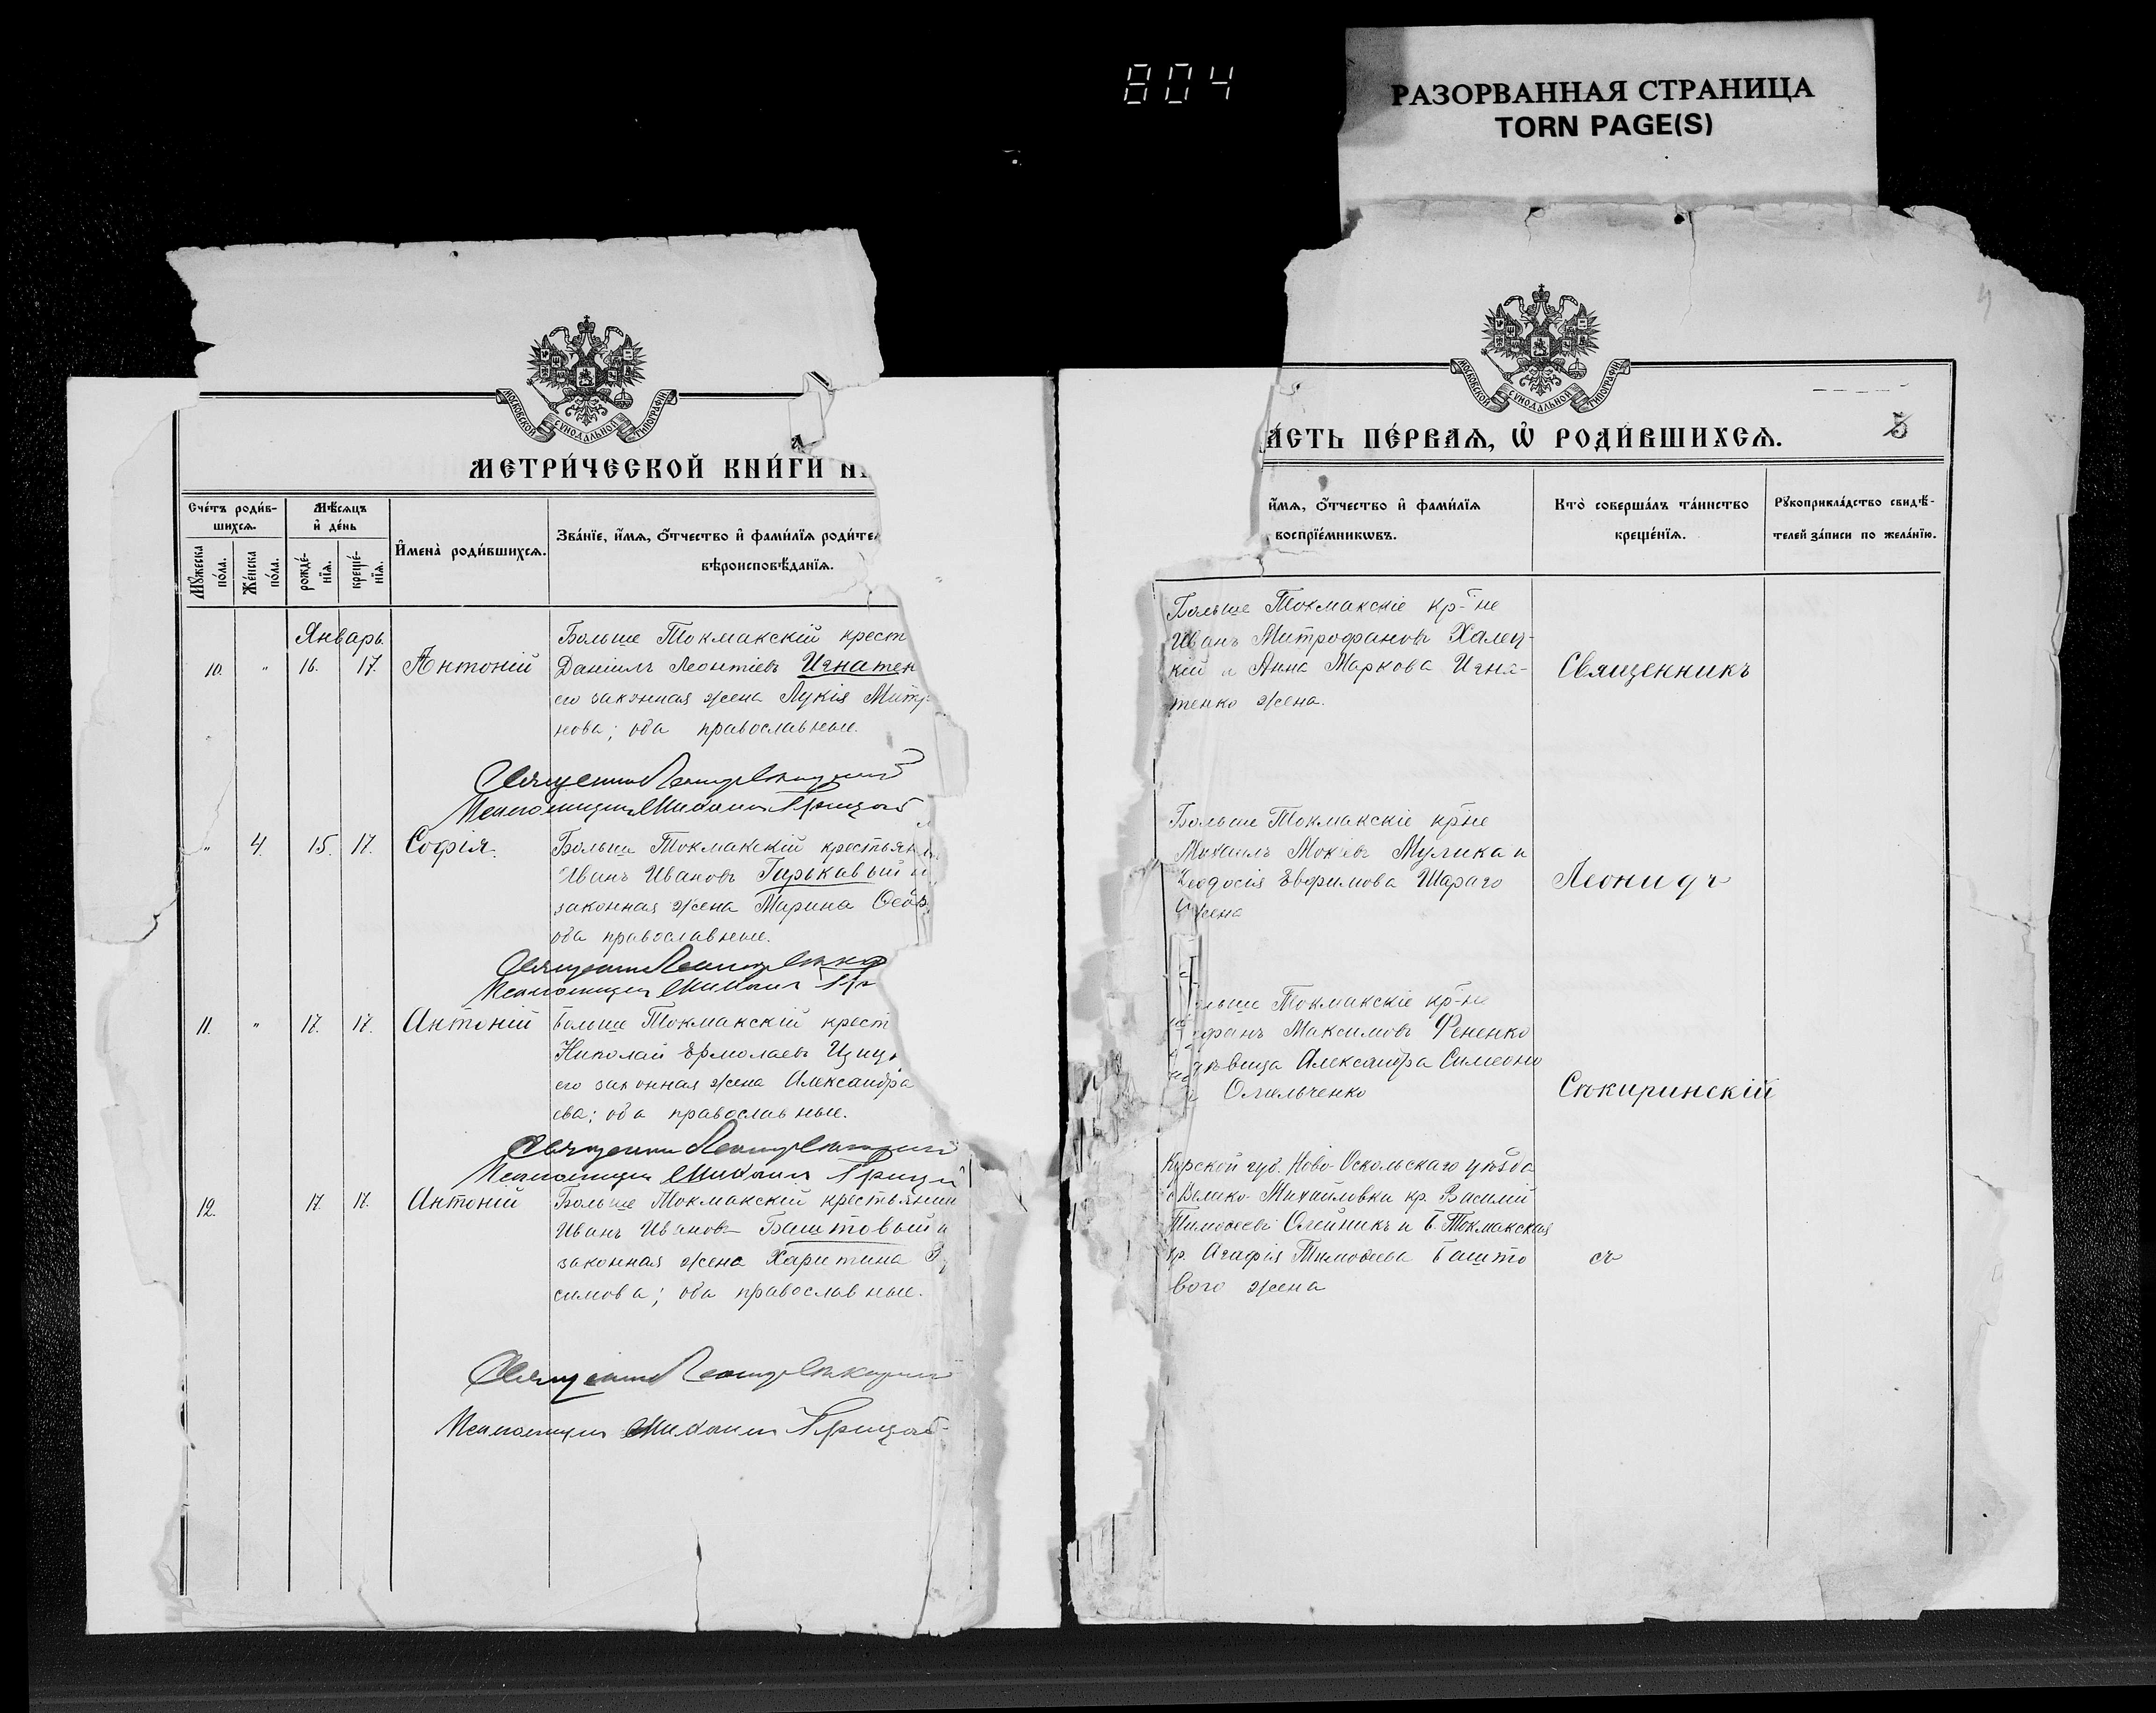 804
РАЗОРВАННАЯ СТРАНИЦА
TORN PAGE(S)
МОСКОВСКОЙ СѴНОДАЛЬНОЙ ТИПОГРАФІИ
МЕТРИ́ЧЕСКОЙ КНИ́ГИ Н
Сче́тъ роди́в-
шихсѧ.
Мѣ́сѧцъ
и҆ де́нь
Мꙋ́жеска
по́ла.
Же́нска
по́ла.
рожде́-
нїѧ.
креще́-
нїѧ.
И҆мена̀ роди́вшихсѧ.
Зва́нїе, и҆́мѧ, ѻ҆́тчество и҆ фами́лїѧ роди́те
вѣроисповѣ́данїѧ.
Январь.
10. " 16. 17. Антоній
Больше Токмакскій крест
Даніилъ Леонтіевъ Игнатен
его законная жена Лукія Митр
нова; оба православные.
" 4. 15. 17. Софія.
Больше Токмакскій крестьян
Иванъ Ивановъ Гирькавый и
законная жена Марина
оба православные.
11. " 17. 17. Антоній
Больше Токмакскій крест
Николай Ермолаевъ
его законная жена Александра
ева; оба православные.
12. 17. 17. Антоній
Больше Токмакскій крестьянин
Иванъ Ивановъ Баштовый и
законная жена Харитина
симова; оба православные.
МОСКОВСКОЙ СѴНОДАЛЬНОЙ ТИПОГРАФІИ
А́СТЬ ПЕ́РВАѦ, Ѡ҆ РОДИ́ВШИХСѦ.
5
и҆́мѧ, ѻ҆́тчество и҆ фами́лїѧ
воспрїе́мникѡвъ.
Кто̀ соверша́лъ та́инство
креще́нїѧ.
Рꙋкоприкла́дство свидѣ́-
телей за́писи по жела́нїю.
Больше Токмакскіе кр-не
Иванъ Митрофановъ Халец-
кій и Анна Маркова Игна-
тенко жена.
Священникъ
Больше Токмакскіе кр-не
Михаилъ Мокіевъ Мулика и
Ѳеодосія Евфимова Шараго
жена
Леонидъ
ольше Токмакскіе кр-не
фанъ Максимовъ Фененко
дѣвица Александра Симеоно
Омельченко
Сокиринскій
Курской губ. Ново-Оскольскаго уѣзда
с. Велико-Михайловки кр. Василій
Тимоѳеевъ Олейникъ и Б. Токмакская
кр. Агафія Тимоѳеева Башто
вого жена
съ